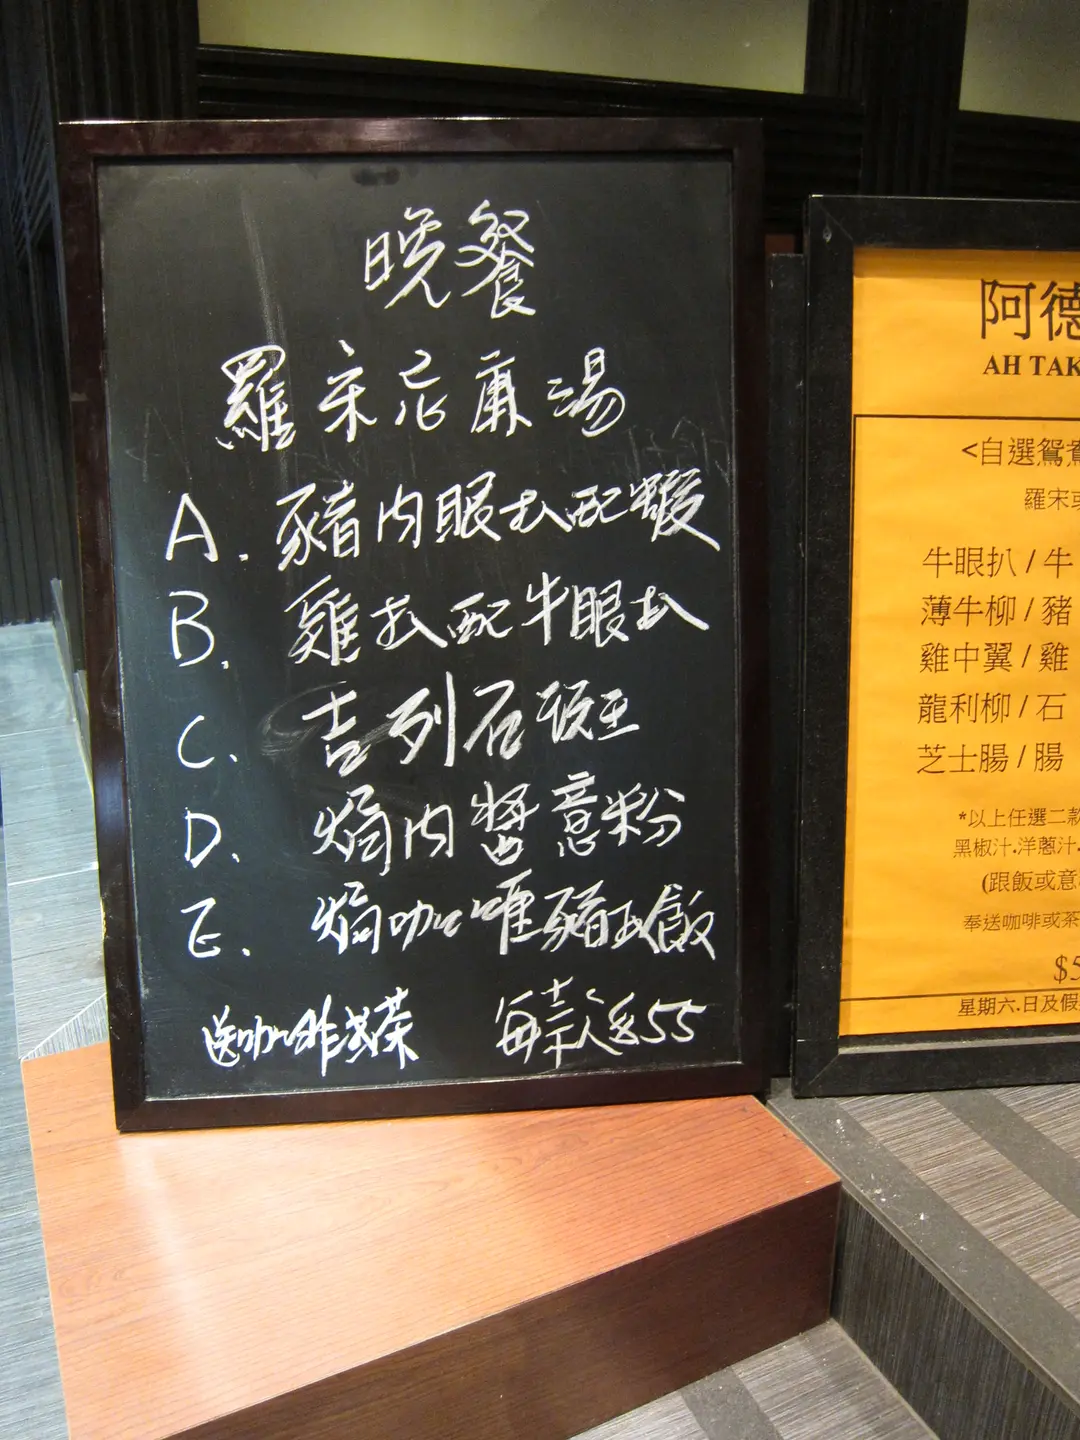 晚餐
羅宋忌廉湯
A. 豬肉眼扒配蝦
B. 雞扒配牛眼扒
C. 吉列石斑
D. 焗肉醬意粉
E. 焗咖喱豬扒飯
送咖啡或茶 每款
55
阿德
AH TAK
<自選鴛鴦
羅宋或
牛眼扒 / 牛
薄牛柳 / 豬
雞中翼 / 雞
龍利柳 / 石
芝士腸 / 腸
*以上任選二款
黑椒汁.洋蔥汁.
(跟飯或意
奉送咖啡或茶
$5
星期六.日及假